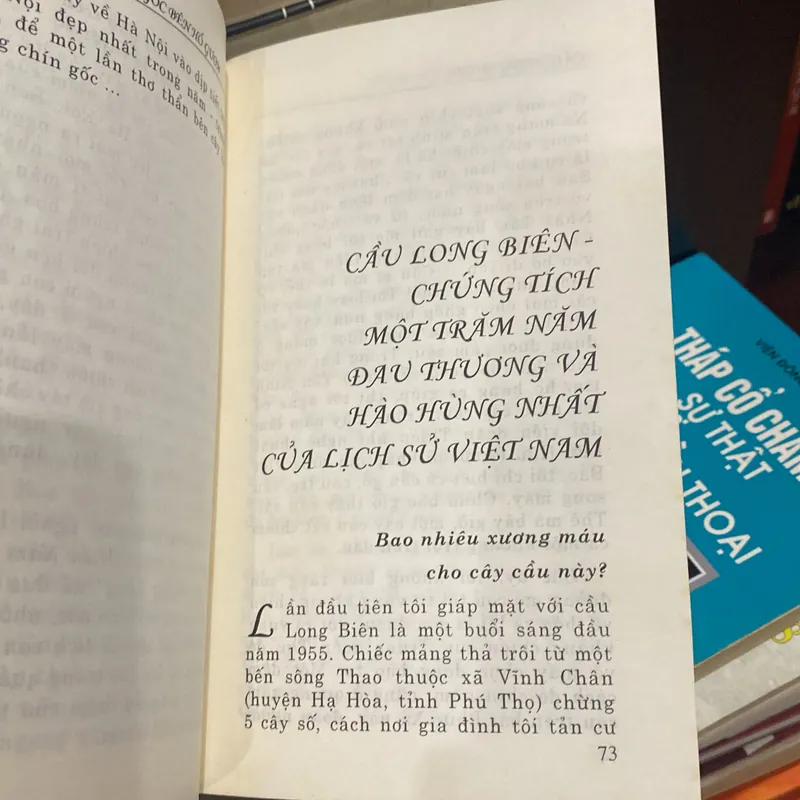 GỐC BÊN HỒ GƯƠM
về Hà Nội vào dịp
đẹp nhất trong năm -
để một lần thơ thẩn bên cây
chín gốc ...
CẦU LONG BIÊN -
CHỨNG TÍCH
MỘT TRĂM NĂM
ĐAU THƯƠNG VÀ
HÀO HÙNG NHẤT
CỦA LỊCH SỬ VIỆT NAM
Bao nhiêu xương máu
cho cây cầu này?
Lần đầu tiên tôi giáp mặt với cầu
Long Biên là một buổi sáng đầu
năm 1955. Chiếc mảng thả trôi từ một
bến sông Thao thuộc xã Vĩnh Chân
(huyện Hạ Hòa, tỉnh Phú Thọ) chừng
5 cây số, cách nơi gia đình tôi tản cư
73
VIỆN ĐÔNG
THÁP CỔ CHĂM
SỰ THẬT
THOẠI